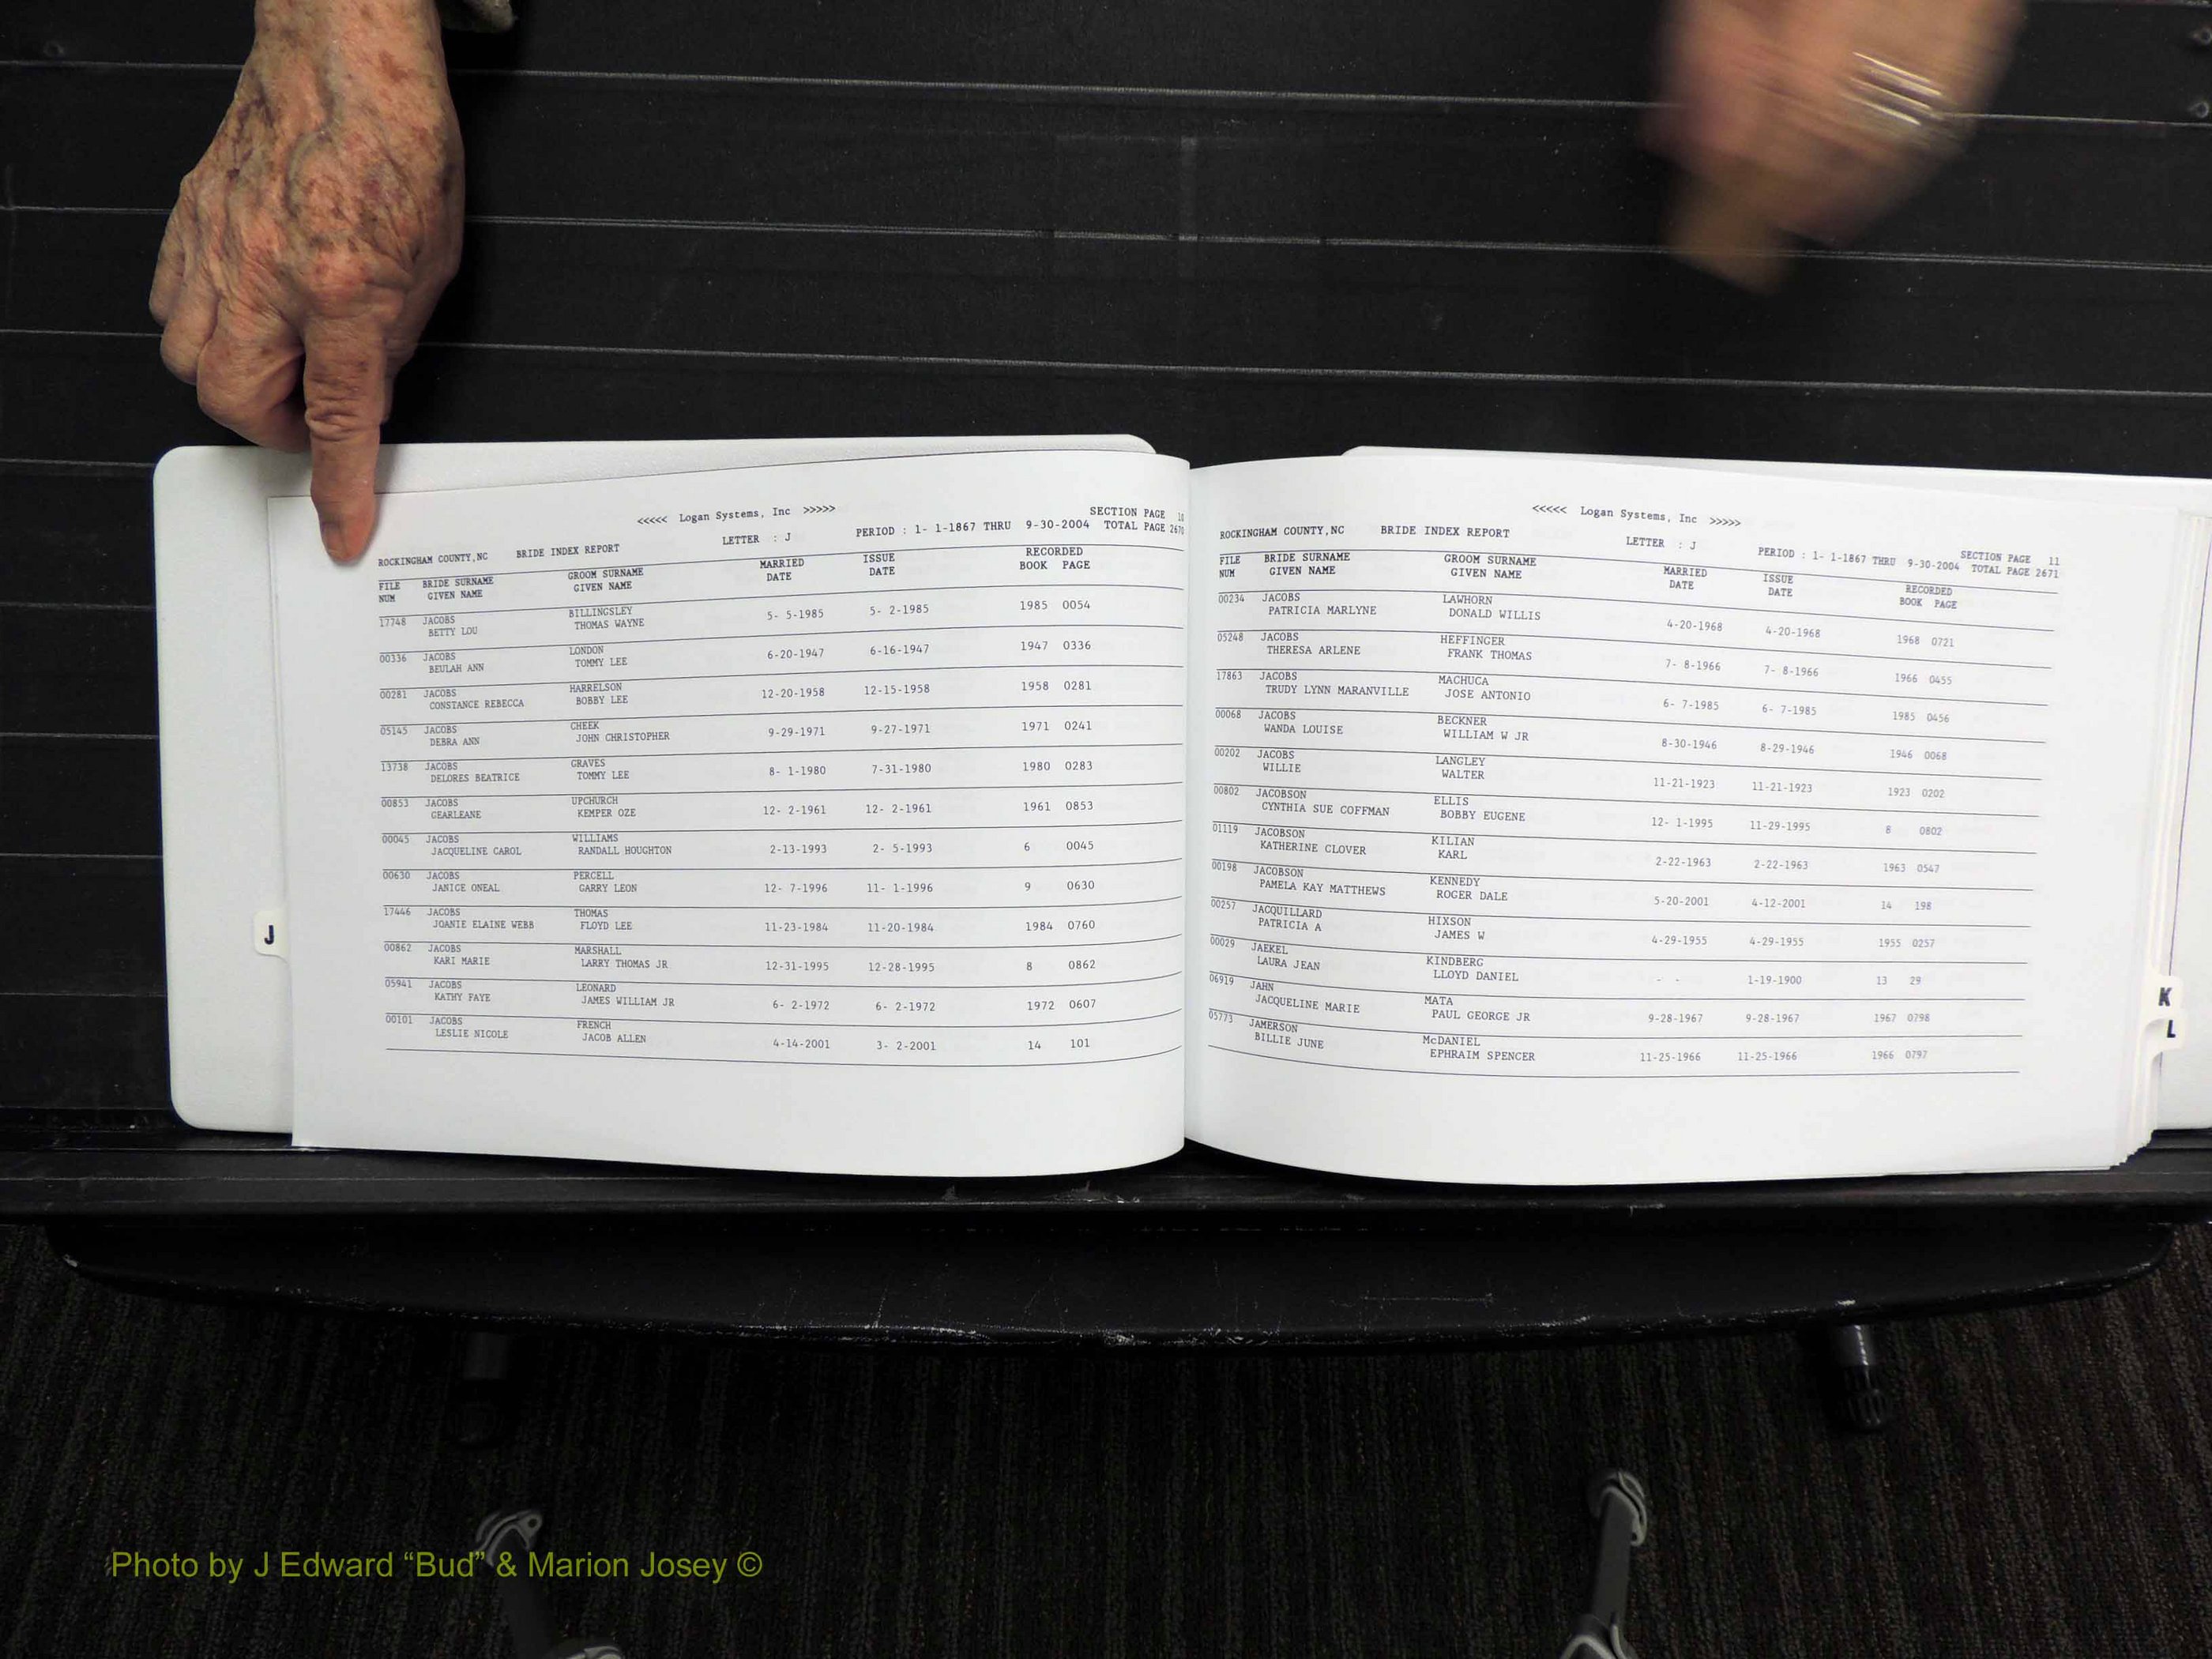 <<<<< Logan Systems, Inc >>>>>
SECTION PAGE 10
ROCKINGHAM COUNTY,NC BRIDE INDEX REPORT LETTER : J PERIOD : 1- 1-1867 THRU 9-30-2004 TOTAL PAGE 2670
FILE BRIDE SURNAME GROOM SURNAME MARRIED ISSUE RECORDED
NUM GIVEN NAME GIVEN NAME DATE DATE BOOK PAGE
17748 JACOBS BILLINGSLEY
BETTY LOU THOMAS WAYNE 5- 5-1985 5- 2-1985 1985 0054
00336 JACOBS LONDON
BEULAH ANN TOMMY LEE 6-20-1947 6-16-1947 1947 0336
00281 JACOBS HARRELSON
CONSTANCE REBECCA BOBBY LEE 12-20-1958 12-15-1958 1958 0281
05145 JACOBS CHEEK
DEBRA ANN JOHN CHRISTOPHER 9-29-1971 9-27-1971 1971 0241
13738 JACOBS GRAVES
DELORES BEATRICE TOMMY LEE 8- 1-1980 7-31-1980 1980 0283
00853 JACOBS UPCHURCH
GEARLEANE KEMPER OZE 12- 2-1961 12- 2-1961 1961 0853
00045 JACOBS WILLIAMS
JACQUELINE CAROL RANDALL HOUGHTON 2-13-1993 2- 5-1993 6 0045
00630 JACOBS PERCELL
JANICE ONEAL GARRY LEON 12- 7-1996 11- 1-1996 9 0630
17446 JACOBS THOMAS
JOANIE ELAINE WEBB FLOYD LEE 11-23-1984 11-20-1984 1984 0760
00862 JACOBS MARSHALL
KARI MARIE LARRY THOMAS JR 12-31-1995 12-28-1995 8 0862
05941 JACOBS LEONARD
KATHY FAYE JAMES WILLIAM JR 6- 2-1972 6- 2-1972 1972 0607
00101 JACOBS FRENCH
LESLIE NICOLE JACOB ALLEN 4-14-2001 3- 2-2001 14 101
J
<<<<< Logan Systems, Inc >>>>>
SECTION PAGE 11
ROCKINGHAM COUNTY,NC BRIDE INDEX REPORT LETTER : J PERIOD : 1- 1-1867 THRU 9-30-2004 TOTAL PAGE 2671
FILE BRIDE SURNAME GROOM SURNAME MARRIED ISSUE RECORDED
NUM GIVEN NAME GIVEN NAME DATE DATE BOOK PAGE
00234 JACOBS LAWHORN
PATRICIA MARLYNE DONALD WILLIS 4-20-1968 4-20-1968 1968 0721
05248 JACOBS HEFFINGER
THERESA ARLENE FRANK THOMAS 7- 8-1966 7- 8-1966 1966 0455
17863 JACOBS MACHUCA
TRUDY LYNN MARANVILLE JOSE ANTONIO 6- 7-1985 6- 7-1985 1985 0456
00068 JACOBS BECKNER
WANDA LOUISE WILLIAM W JR 8-30-1946 8-29-1946 1946 0068
00202 JACOBS LANGLEY
WILLIE WALTER 11-21-1923 11-21-1923 1923 0202
00802 JACOBSON ELLIS
CYNTHIA SUE COFFMAN BOBBY EUGENE 12- 1-1995 11-29-1995 8 0802
01119 JACOBSON KILIAN
KATHERINE CLOVER KARL 2-22-1963 2-22-1963 1963 0547
00198 JACOBSON KENNEDY
PAMELA KAY MATTHEWS ROGER DALE 5-20-2001 4-12-2001 14 198
00257 JACQUILLARD HIXSON
PATRICIA A JAMES W 4-29-1955 4-29-1955 1955 0257
00029 JAEKEL KINDBERG
LAURA JEAN LLOYD DANIEL - - 1-19-1900 13 29
06919 JAHN MATA
JACQUELINE MARIE PAUL GEORGE JR 9-28-1967 9-28-1967 1967 0798
05773 JAMERSON McDANIEL
BILLIE JUNE EPHRAIM SPENCER 11-25-1966 11-25-1966 1966 0797
K
L
Photo by J Edward “Bud” & Marion Josey ©